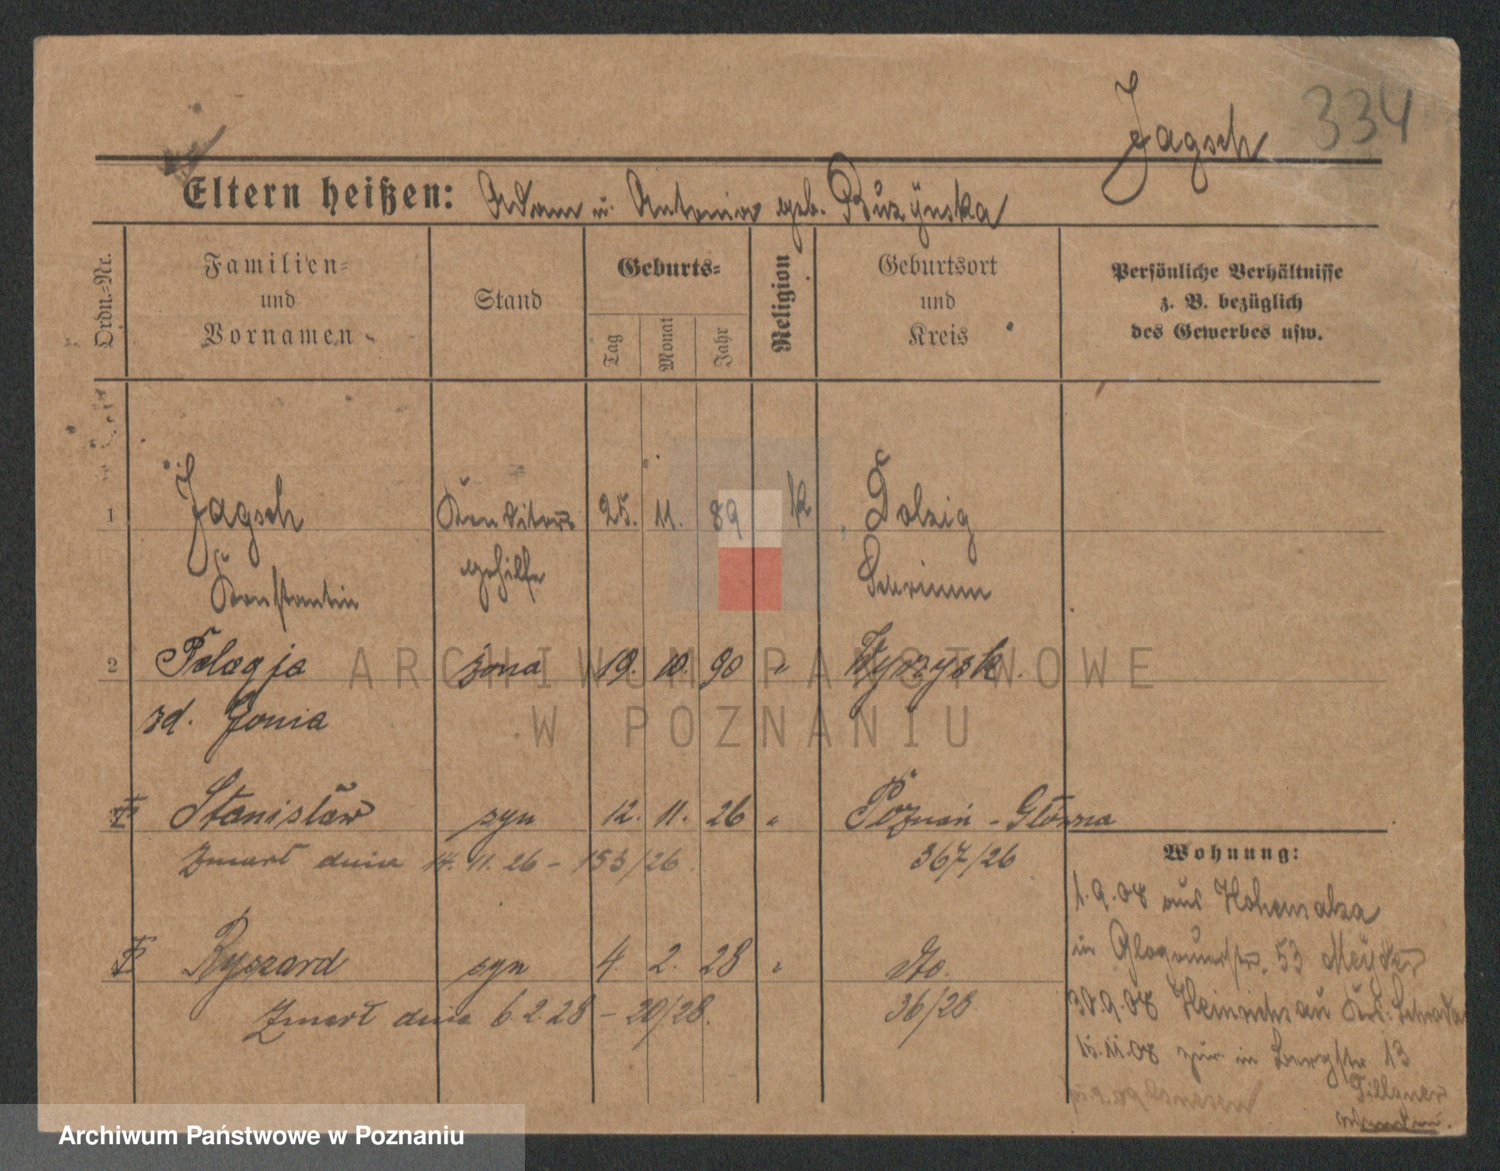 Jagsch 334
Eltern heißen: Adam u. Antonia geb. Buzynska
Ordn.-Nr.
Familien- und Vornamen
Stand
Geburts-
Tag Monat Jahr
Religion
Geburtsort und Kreis
Persönliche Verhältnisse
z. B. bezüglich
des Gewerbes usw.
1 Jagsch Konditor- 25. 11. 89 k. Dolzig
Konstantin gehilfe Schrimm
2 Pelagja żona 19. 10. 90 " Wyrzysk.
zd. Jonia
Stanisław syn 12. 11. 26 " Poznań - Główna
Zmarł dnia 14. 11. 26 - 153/26. 367/26
Ryszard syn 4. 2. 28 " dto.
Zmarł dnia 6. 2. 28 - 20/28. 36/28
Wohnung:
1.9.08 aus Hohensalza
in Glogauerstr. 53
30.9.08 Heinrichsau
15.11.08 zur. in Bergstr. 13
ARCHIWUM PAŃSTWOWE
W POZNANIU
Archiwum Państwowe w Poznaniu